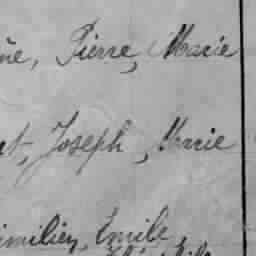 ne, Pierre, Marie
t, Joseph, Marie
imilien, Emile